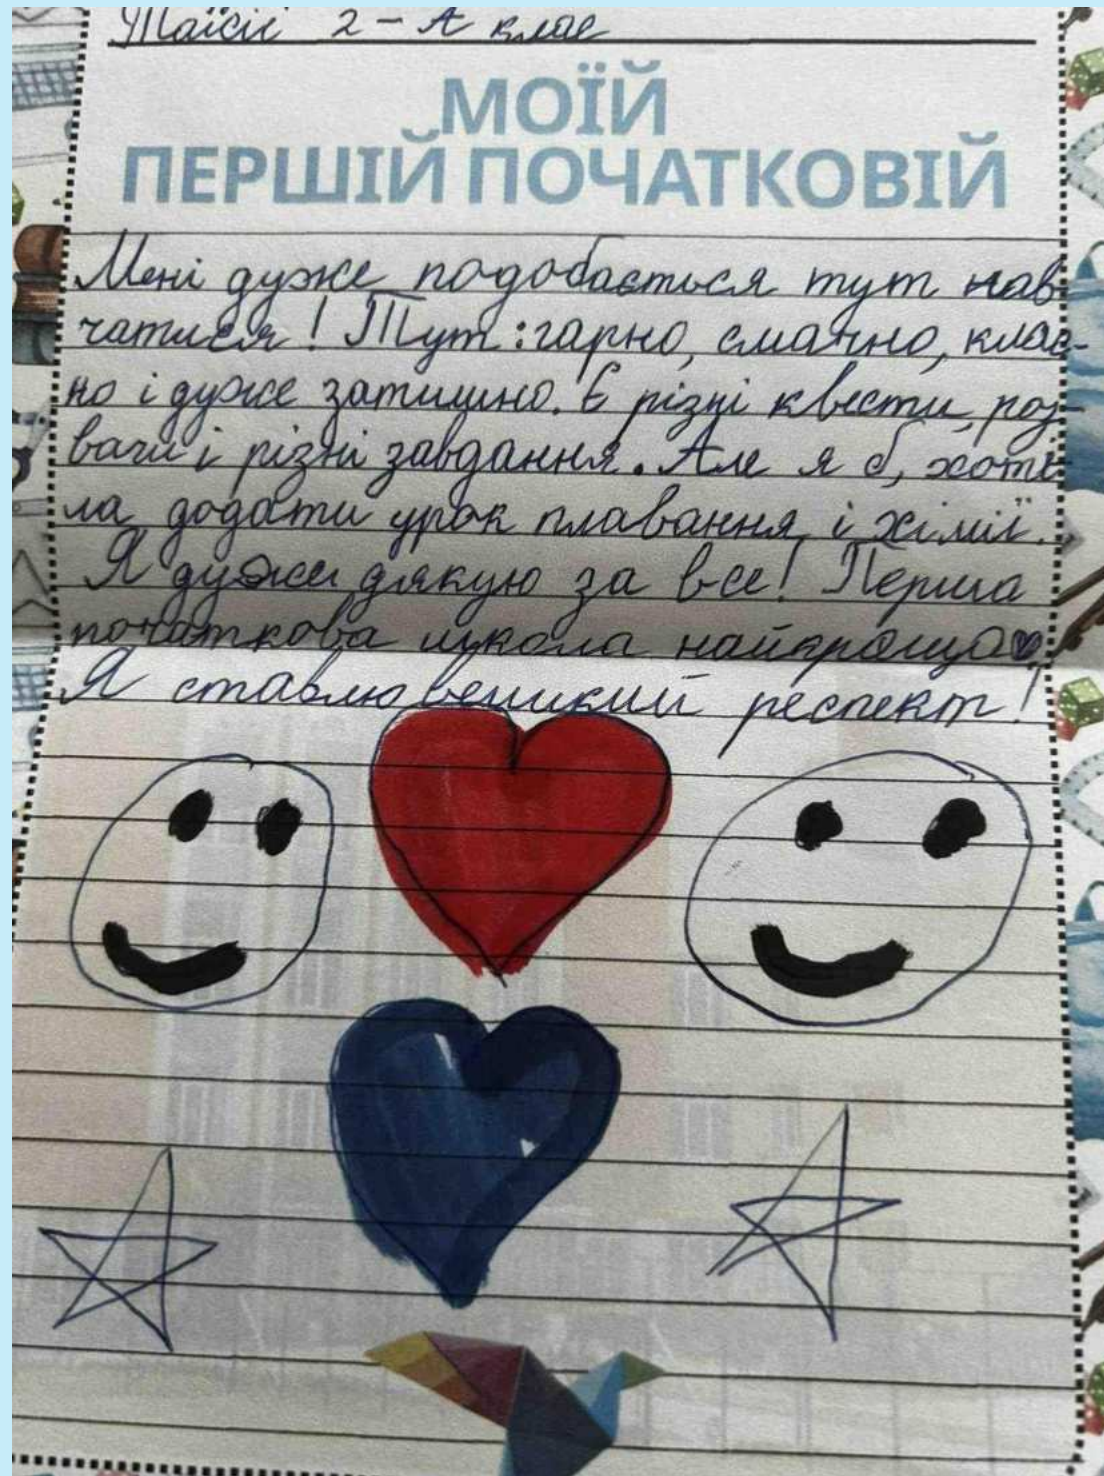 Таїсії 2 - А клас
МОЇЙ
ПЕРШІЙ ПОЧАТКОВІЙ
Мені дуже подобається тут нав
чатися! Тут: гарно, смачно, клас-
но і дуже затишно. Є різні квести, роз-
ваги і різні завдання. Але я б, хоті-
ла додати урок плавання і хімії.
Я дуже дякую за все! Перша
початкова школа найкраща♥
Я ставлю великий респект!